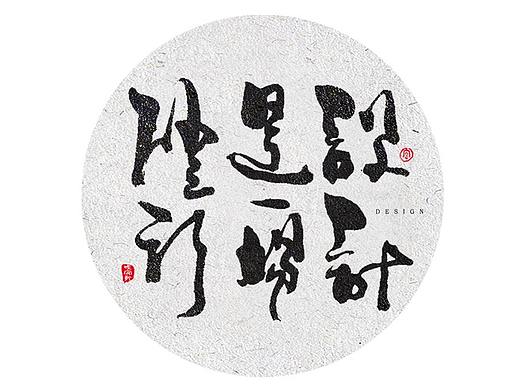 設計
DESIGN
是一場
修行